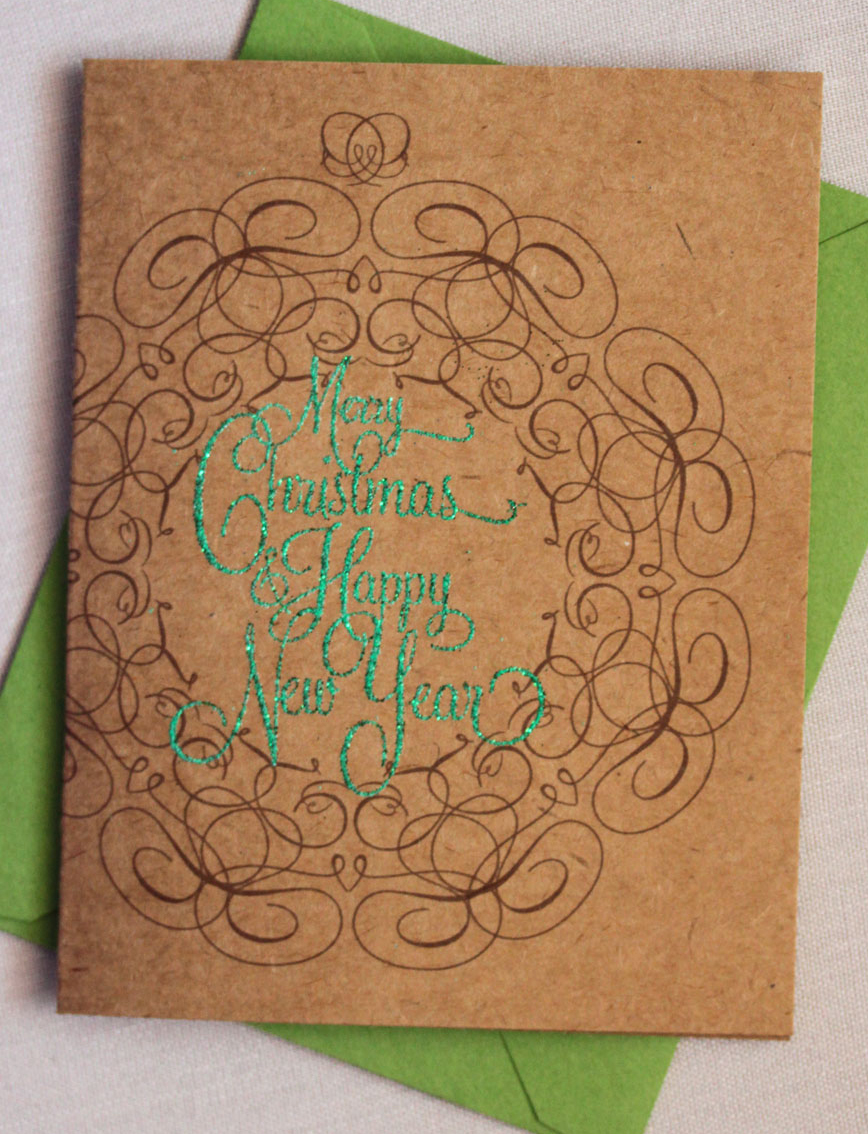 Merry
Christmas
& Happy
New Year